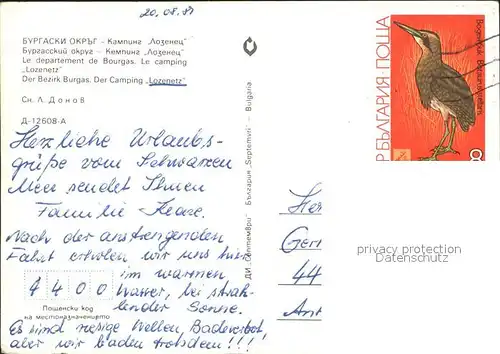 20.08.81
БУРГАСКИ ОКРЪГ – Кампинг „Лозенец"
Бургасский округ – Кемпинг „Лозенец"
Le departement de Bourgas. Le camping
„Lozenetz"
Der Bezirk Burgas. Der Camping „Lozenetz"
Сн. Л. Донов
Д-12608-А
Herzliche Urlaubs-
grüße vom Schwarzen
Meer sendet Ihnen
Familie
Nach der anstrengenden
Fahrt erholen wir uns hier
im warmen
Wasser, bei strah-
lender Sonne.
Es sind riesige Wellen, Badeverbot,
aber wir baden trotzdem!!!
4400
Пощенски код
на местоназначението
ДИ „Септември" България „Septemvri" – Bulgaria
НР БЪЛГАРИЯ·ПОЩА
8
Her
Ger
44
privacy protection
Datenschutz